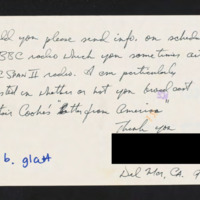 ld you please send info. on schedul
BBC radio which you sometimes ai
CSPAN II radio. I am particularly
sted in whether or not you broad cast
tair Cooke's "Letter from America"
Thank you
b. glatt
Del Mar, Ca.